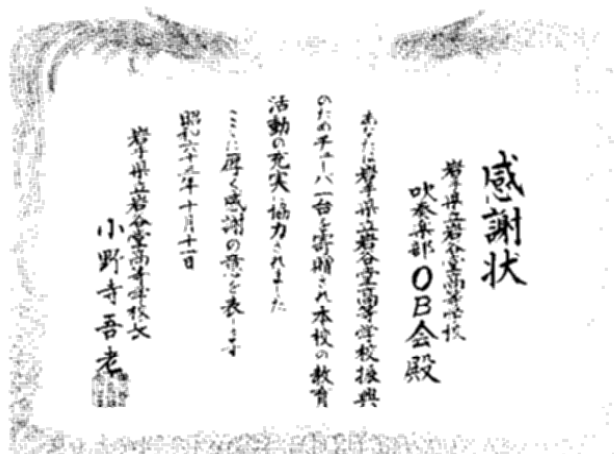 感謝状
岩手県立岩谷堂高等学校
吹奏楽部OB会殿
あなたは岩手県立岩谷堂高等学校振興
のためチューバ一台を寄贈され本校の教育
活動の充実に協力されました
ここに厚く感謝の意を表します
昭和六十三年十月十一日
岩手県立岩谷堂高等学校長
小野寺吾老